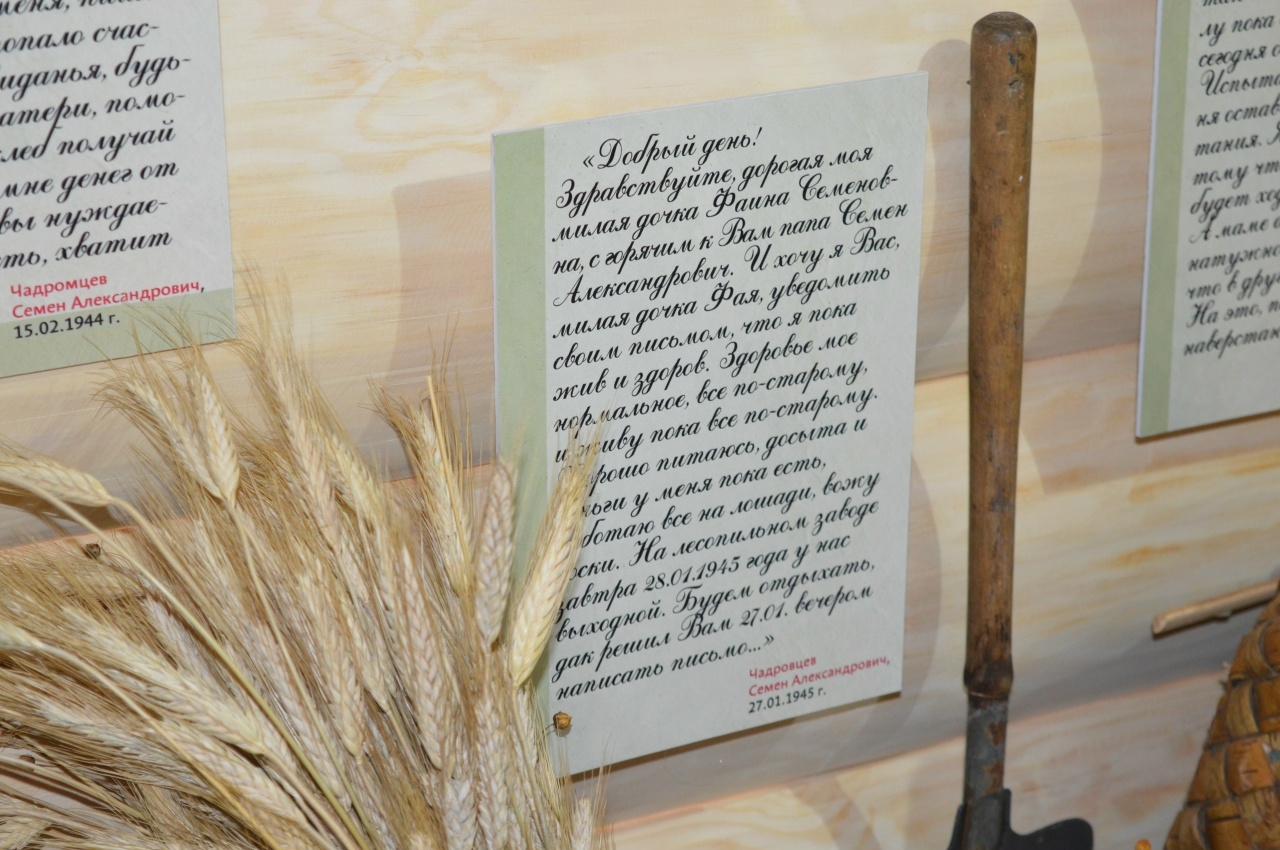 меня,
попало счас-
иданья, будь-
атери, помо-
хлеб получай
мне денег от
вы нуждае-
ть, хватит
Чадромцев
Семен Александрович,
15.02.1944 г.
«Добрый день!
Здравствуйте, дорогая моя
милая дочка Фаина Семенов-
на, с горячим к Вам папа Семен
Александрович. И хочу я Вас,
милая дочка Фая, уведомить
своим письмом, что я пока
жив и здоров. Здоровье мое
нормальное, все по-старому,
и живу пока все по-старому.
орошо питаюсь, досыта и
ньги у меня пока есть,
ботаю все на лошади, вожу
оски. На лесопильном заводе
завтра 28.01.1945 года у нас
выходной. Будем отдыхать,
дак решил Вам 27.01. вечером
написать письмо...»
Чадровцев
Семен Александрович,
27.01.1945 г.
лу пока
сегодня
Испыта
ня остав
тания.
тому чт
будет хо
А маме
натужно
что в дру
На это, п
наверстаю